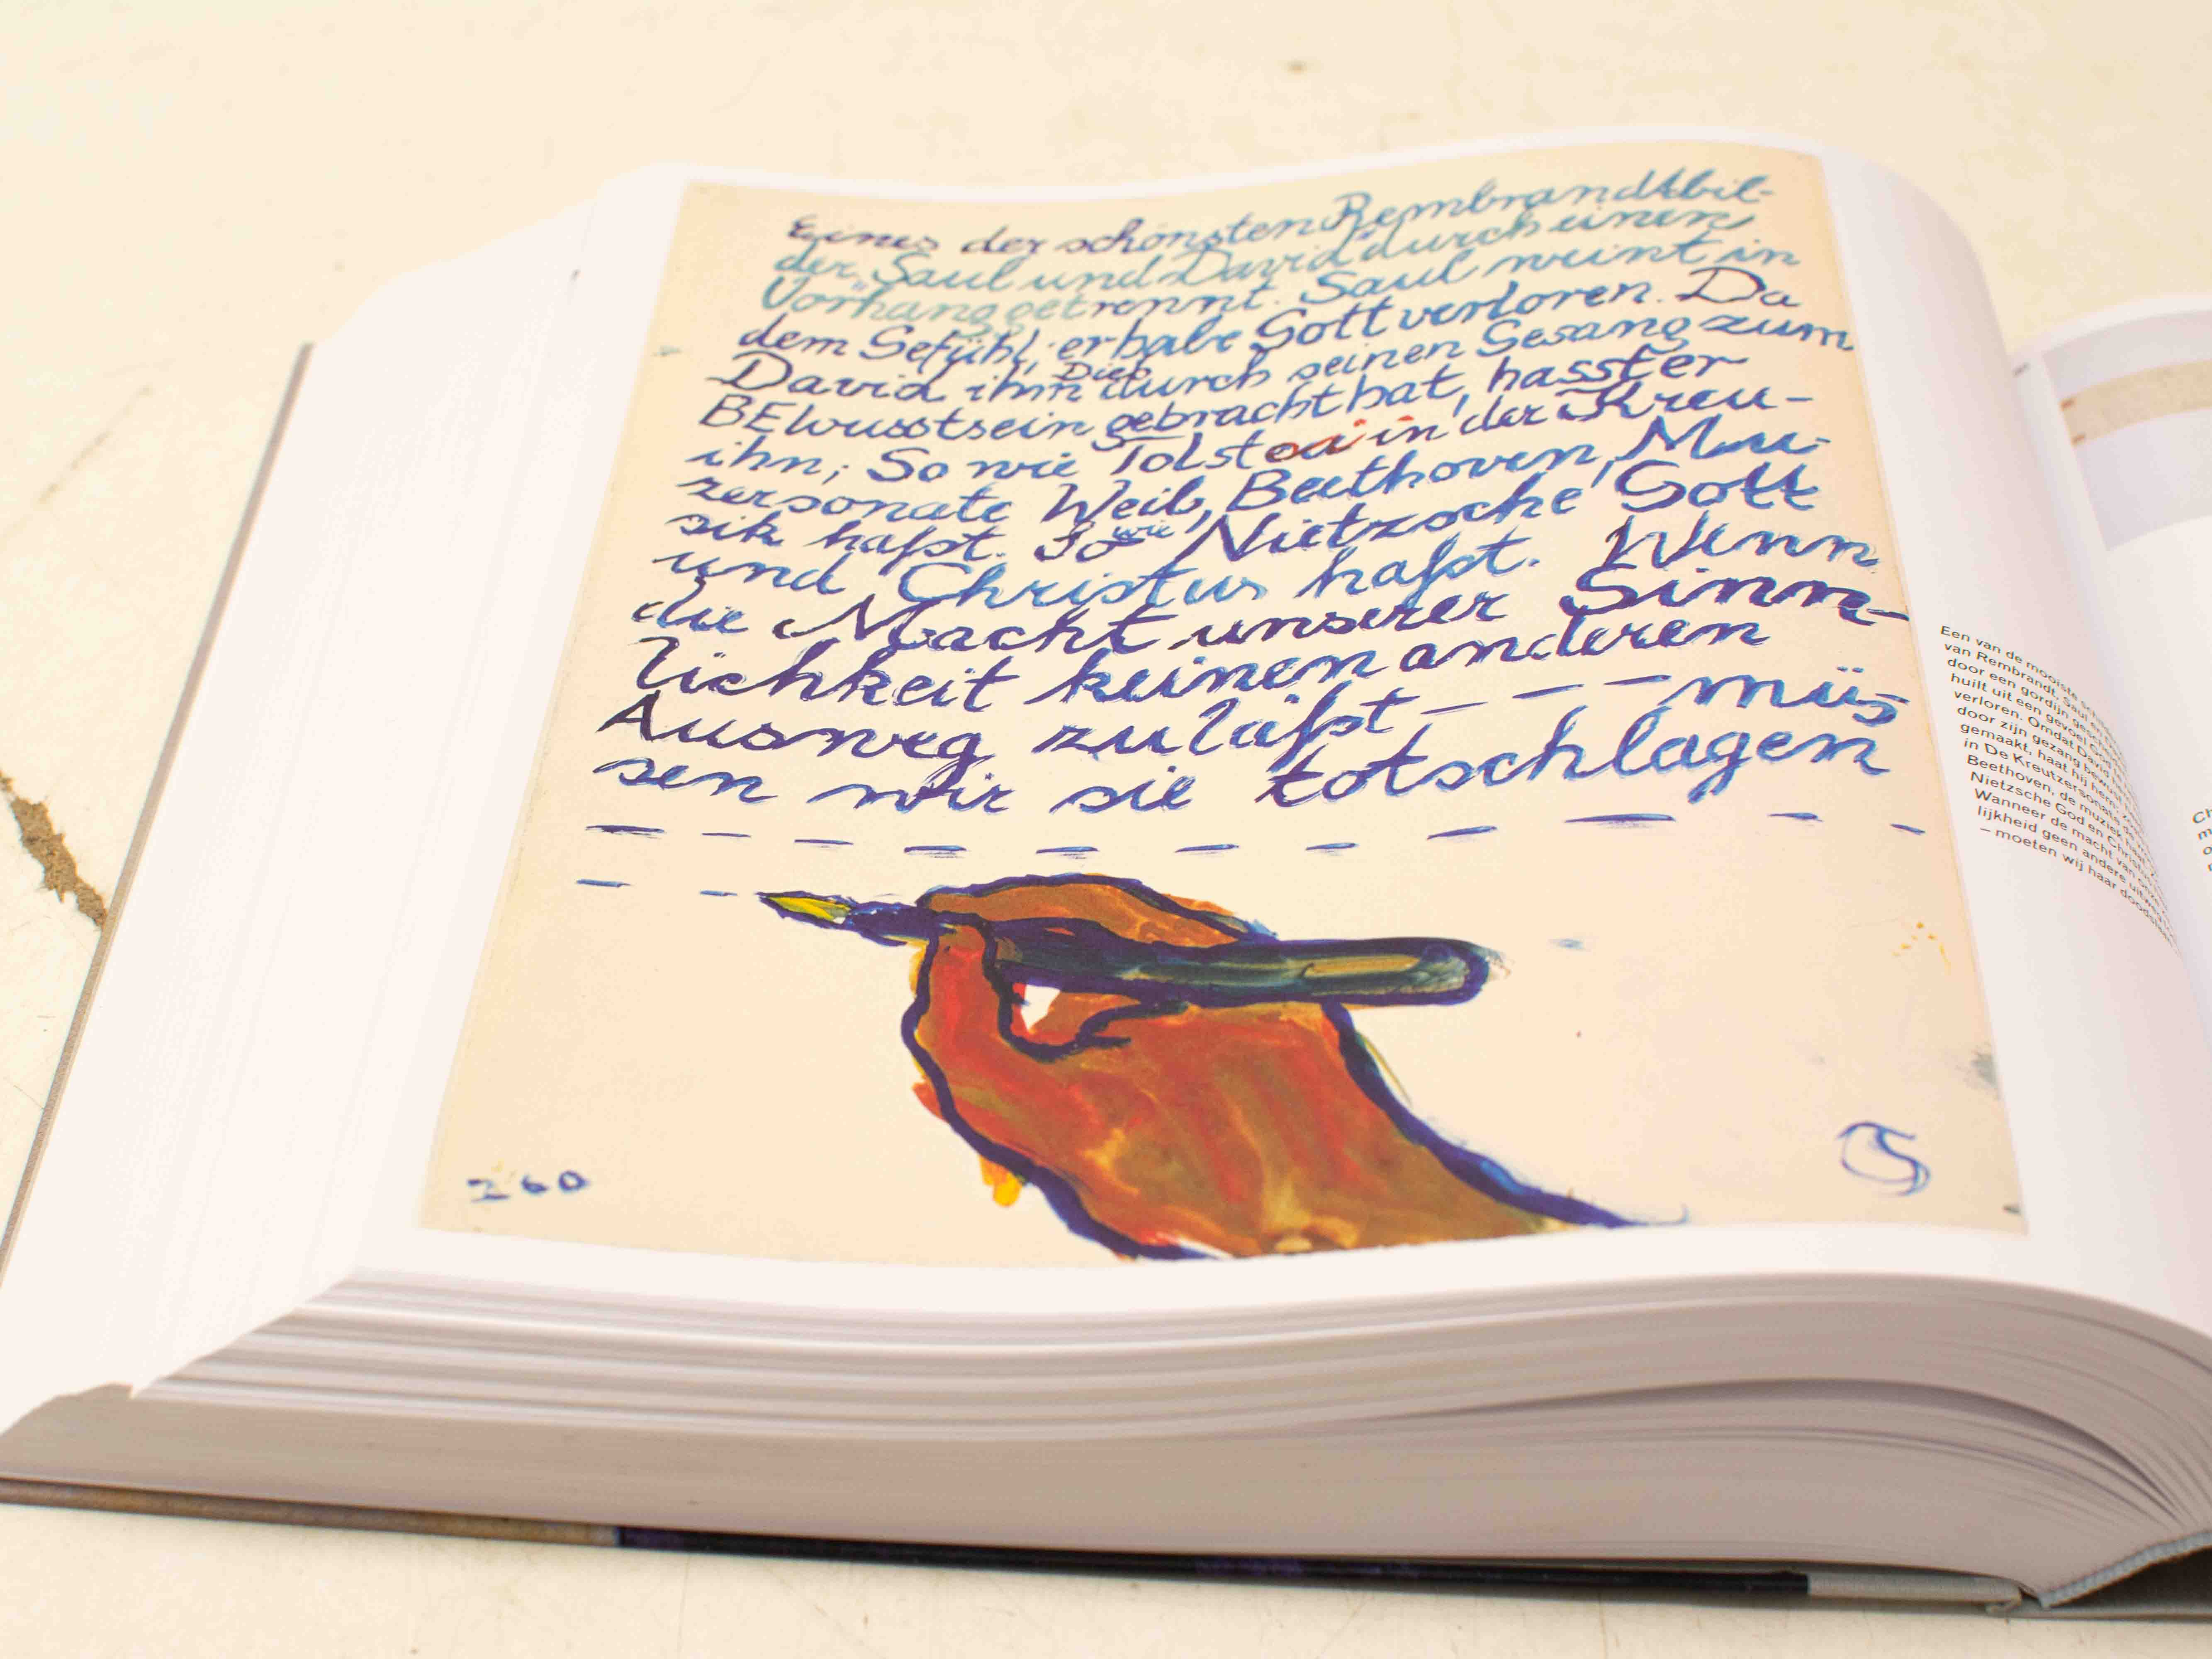 Eines der schönsten Rembrandtbil-
der „Saul und David" durch einen
Vorhang getrennt. Saul weint in
dem Gefühl, er habe Gott verloren. Da
David ihm Dies durch seinen Gesang zum
BEwusstsein gebracht hat, hasst er
ihn; So wie Tolstoi in der Kreu-
zersonate Weib, Beethoven, Mu-
sik haßt. So wie Nietzsche Gott
und Christus haßt. Wenn
die Macht unserer Sinn-
lichkeit keinen anderen
Ausweg zuläßt – – – müs
sen wir sie totschlagen
260
CS
Een van de mooiste
van Rembrandt, Saul en
door een gordijn
huilt uit een gevoel
verloren. Omdat David
door zijn gezang
gemaakt, haat hij hem;
in De Kreutzersonate
Beethoven, de muziek
Nietzsche God en Christus
Wanneer de macht van onze
lijkheid geen andere uitweg
– moeten wij haar